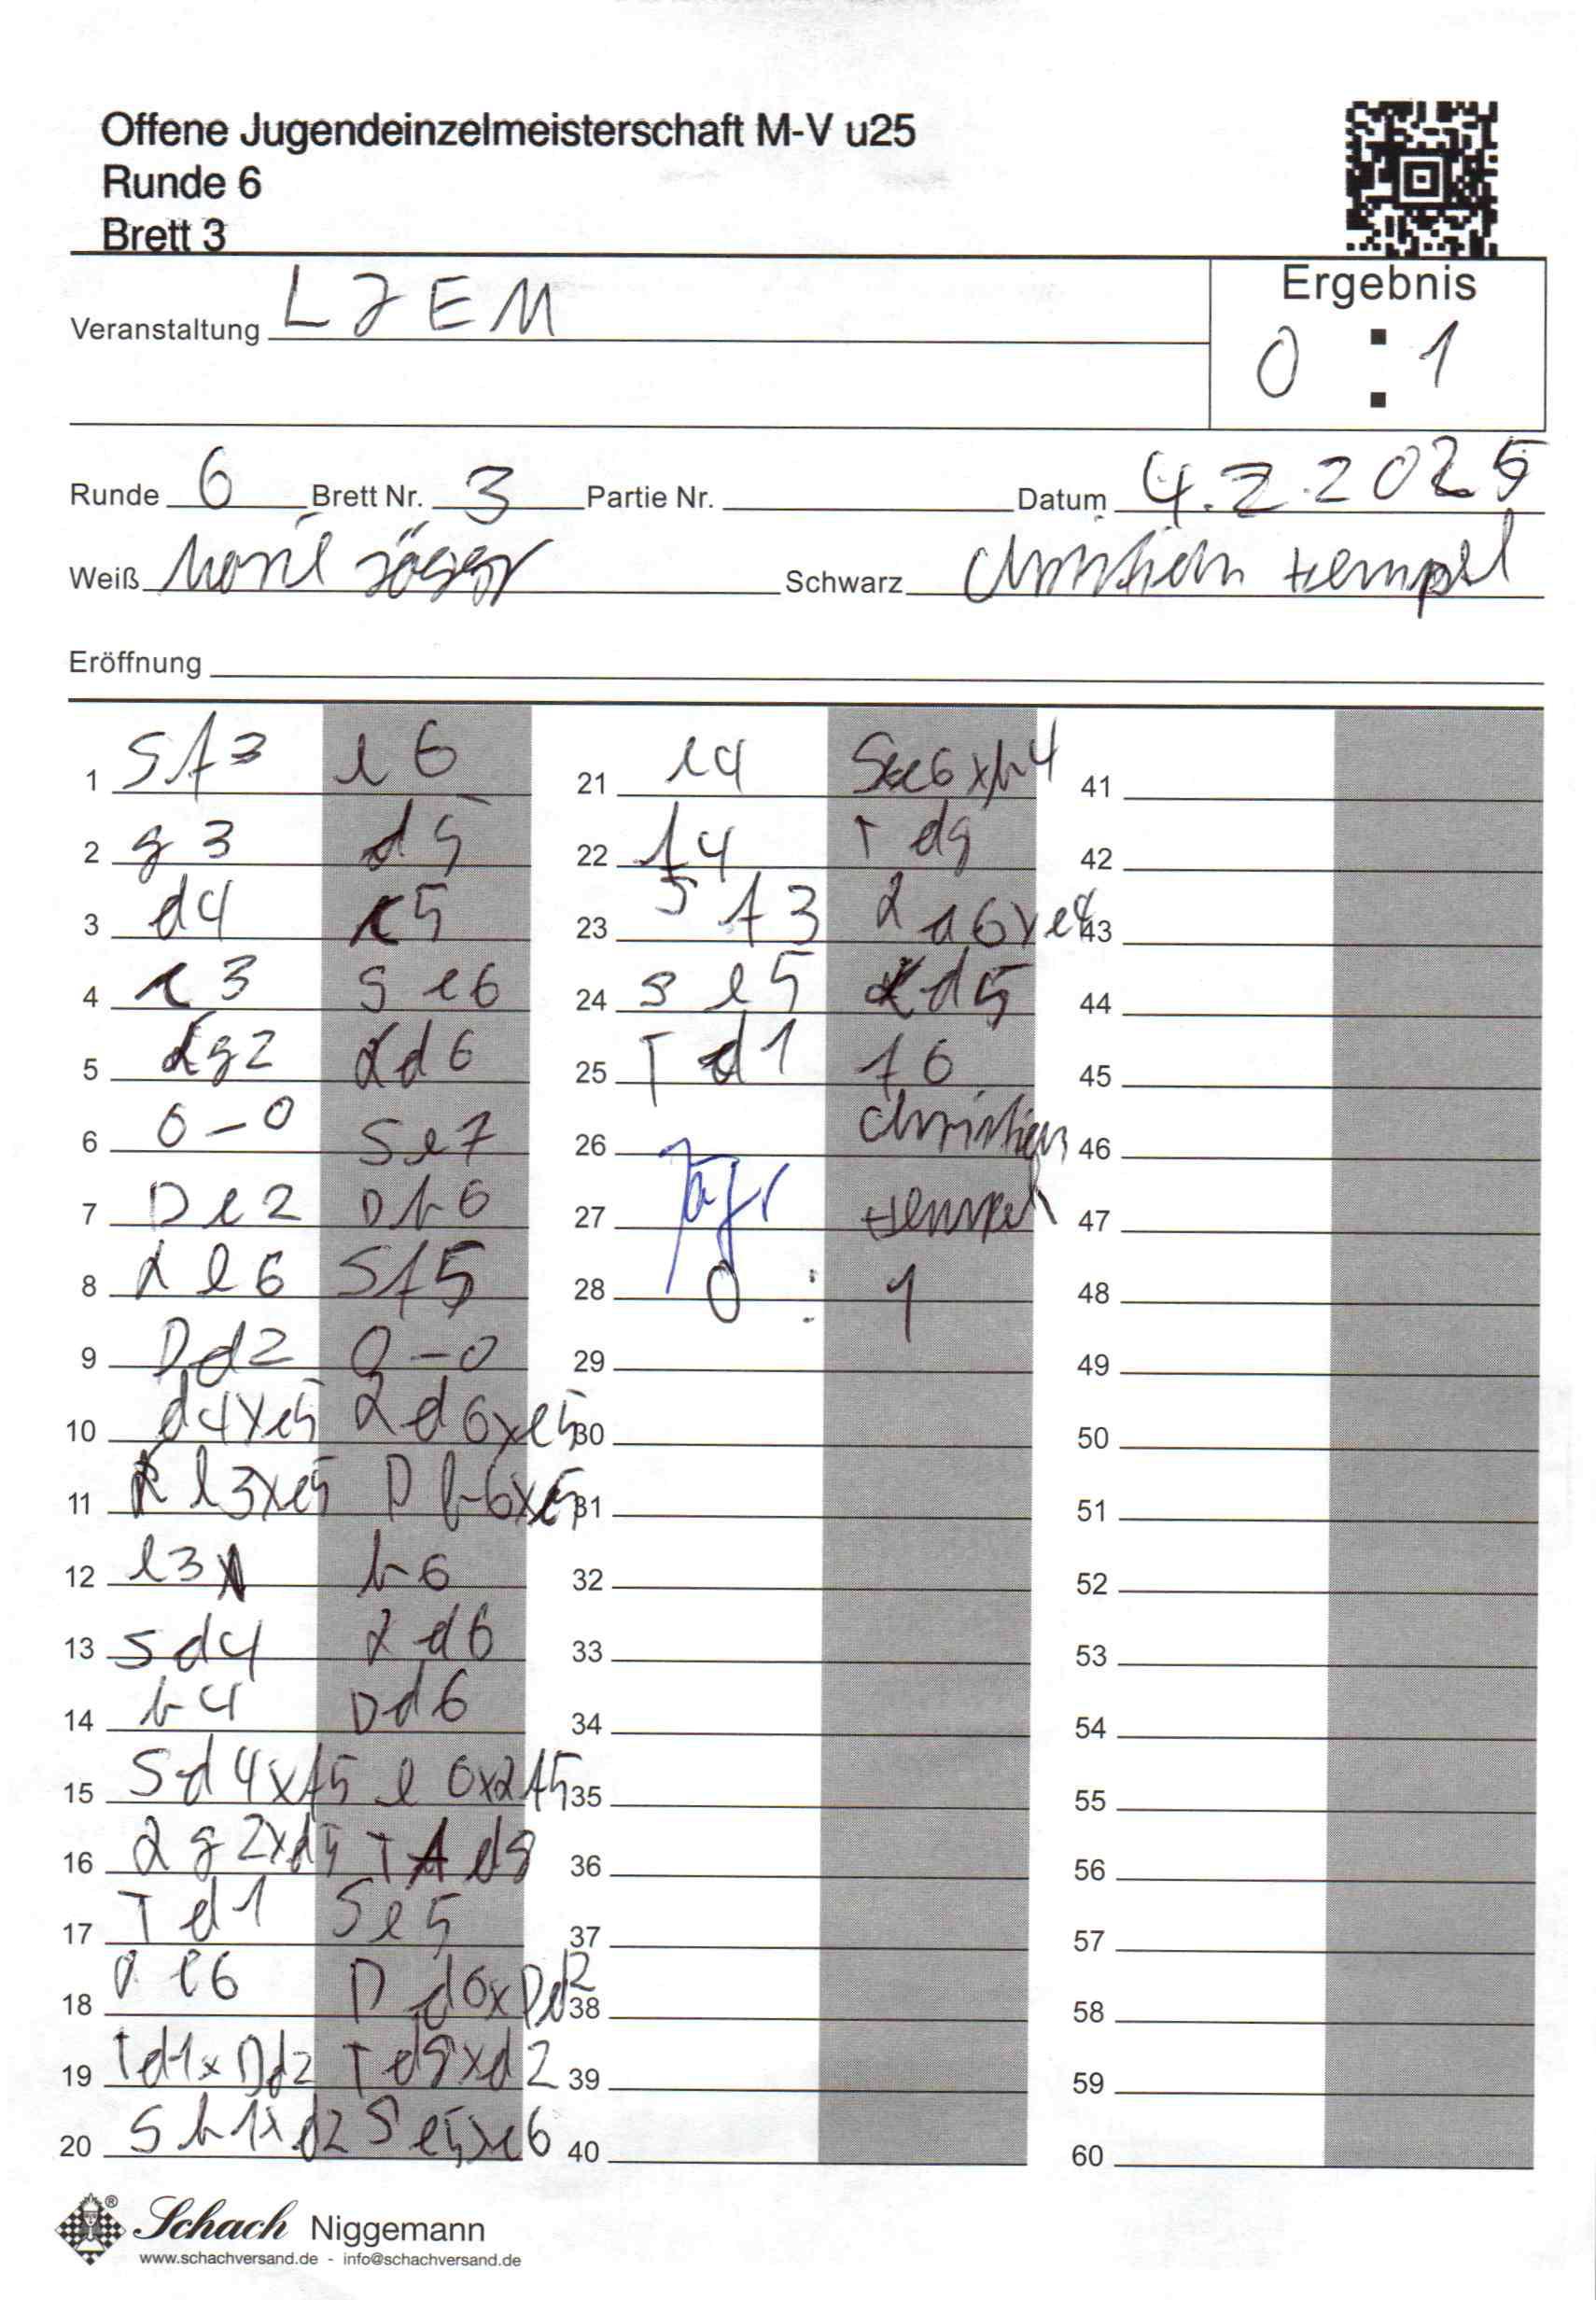 Offene Jugendeinzelmeisterschaft M-V u25
Runde 6
Brett 3
Veranstaltung LJEM
Ergebnis
0 : 1
Runde 6 Brett Nr. 3 Partie Nr. Datum 4.2.2025
Weiß Jäger Schwarz Christian Hempel
Eröffnung
1 Sf3 e6 21 e4 Sc6xb4 41
2 g3 d5 22 f4 Td8 42
3 d4 c5 23 Sf3 La6xe4 43
4 c3 Sc6 24 Se5 Ld5 44
5 Lg2 Ld6 25 Td1 f6 45
6 0-0 Se7 26 Christian 46
7 De2 Db6 27 Jäger Hempel 47
8 Le6 Sf5 28 0 : 1 48
9 Dd2 0-0 29 49
10 d4xc5 Ld6xc5 30 50
11 Le3xc5 Db6xc5 31 51
12 e3 b6 32 52
13 Sd4 Ld6 33 53
14 b4 Dd6 34 54
15 Sd4xf5 e6xf5 35 55
16 Lg2xd5 Td8 36 56
17 Td1 Se5 37 57
18 c6 Dd6xDd2 38 58
19 Td1xDd2 Td8xd2 39 59
20 Sb1xd2 Se5xc6 40 60
Schach Niggemann
www.schachversand.de - info@schachversand.de